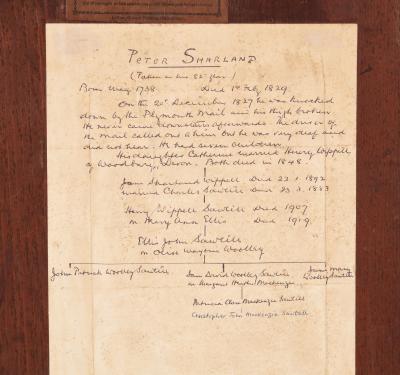 PETER SHARLAND
(Taken in his 82nd year)
Born May 1738. Died 1st Feby 1829.
On the 20th December 1827 he was knocked
down by the Plymouth Mail and his thigh broken.
He never came downstairs afterwards the driver of
the Mail called out to him but he was very deaf and
did not hear. He had seven children.
His daughter Catherine married Henry Wippell
of Woodbury, Devon. Both died in 1848.
Jane Sharland Wippell Died 22.1.1892
married Charles Sawtell Died 23.3.1883
Henry Wippell Sawtell Died 1907
m Mary Ann Ellis Died 1919.
Ellis John Sawtell
m Olive Woolley
John Patrick Woolley Sawtell
David Woolley Sawtell
m Margaret Mackenzie
Mary
Woolley Sawtell
Patricia Mackenzie Sawtell
Christopher John Mackenzie Sawtell